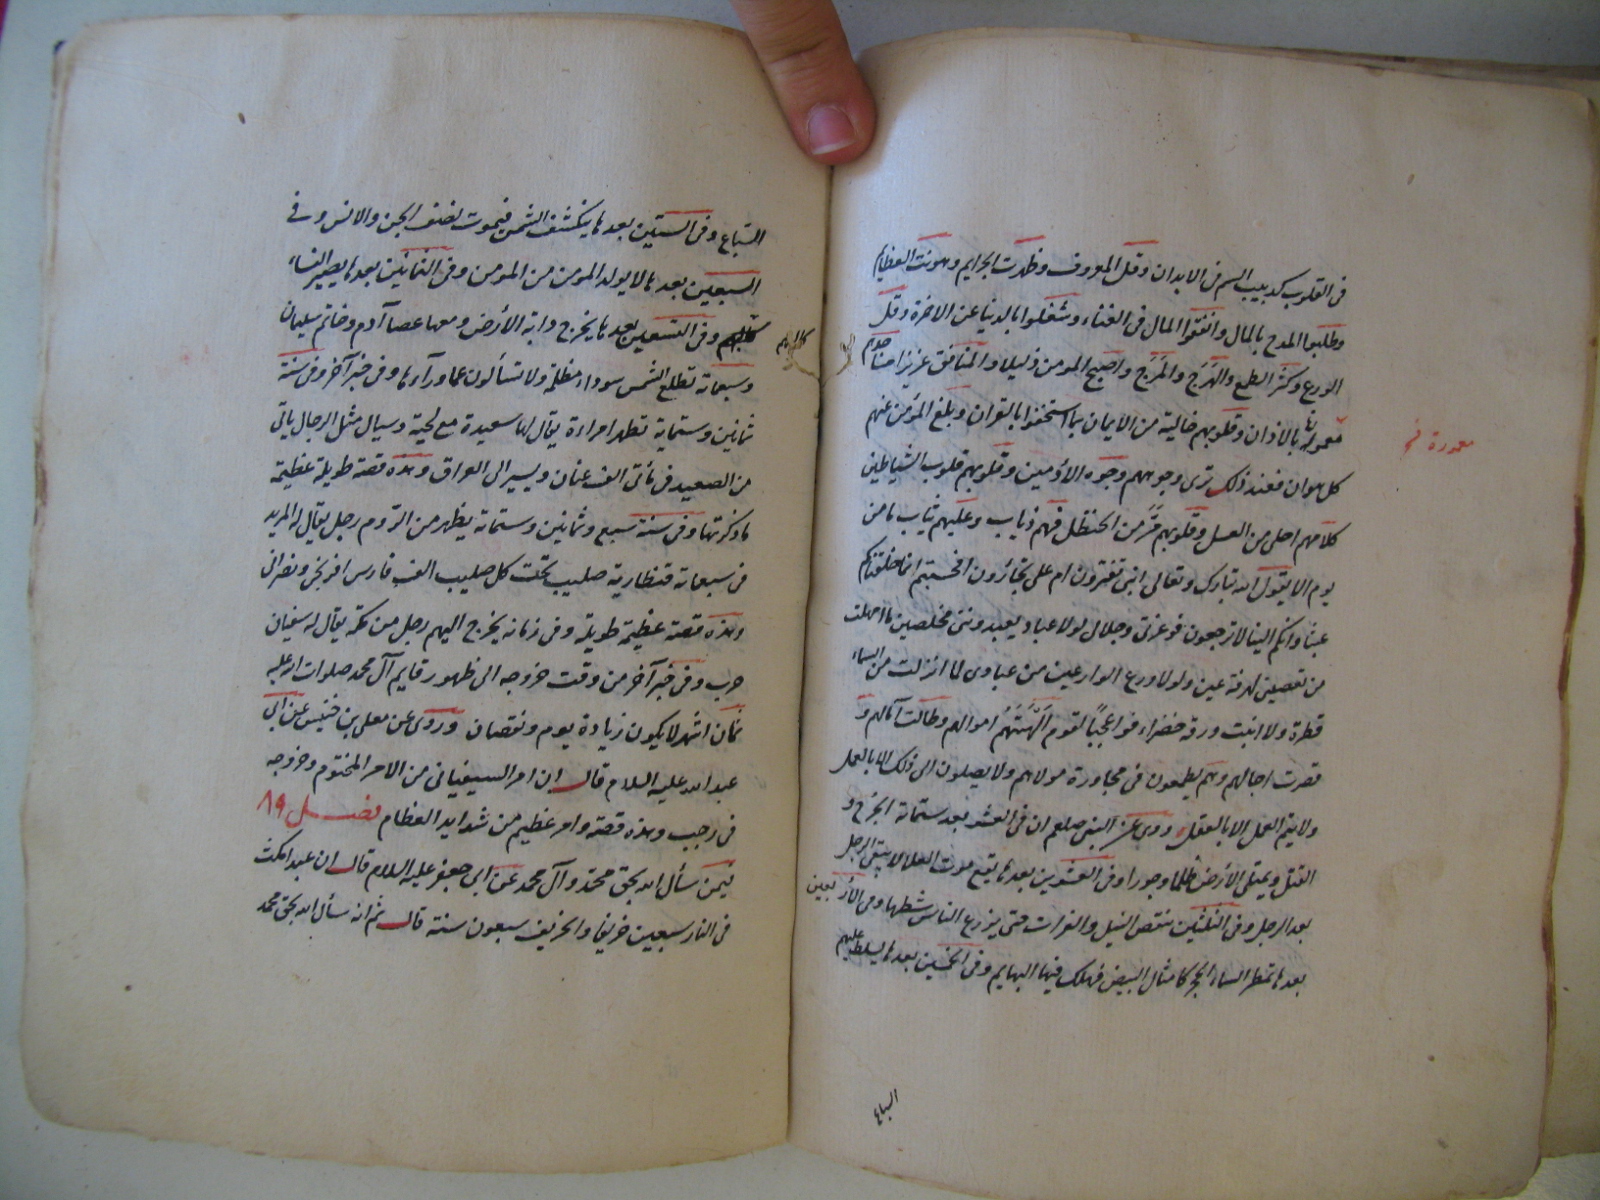 في القلوب كدبيب السم في الابدان وقل المعروف وظهرت الجرايم وهونت العظايم
وطلبوا المدح بالمال وانفقوا المال في الغناء وشغلوا بالدنيا عن الاخرة وقل
الورع وكثر الطمع والهرج والمرج واصبح المومن ذليلا والمنافق عزيزا مساجدهم
معمورة بالاذان وقلوبهم خالية من الايمان بما استخفوا بالقران وبلغ المؤمن عنهم
معمورة خ
كل هوان فعند ذلك ترى وجوههم وجوه الآدميين وقلوبهم قلوب الشياطين
كلامهم احلى من العسل وقلوبهم امر من الحنظل فهم ذياب وعليهم ثياب ما من
يوم الا يقول الله تبارك وتعالى ابي تغترون ام علي تجترؤن افحسبتم انما خلقناكم
عبثا وانكم الينا لا ترجعون فوعزتي وجلالي لولا عباد يعبدونني مخلصين ما امهلت
من يعصيني طرفة عين ولولا ورع الوارعين من عبادى لما انزلت من السماء
قطرة ولا انبت ورقة خضراء فواعجبا لقوم الهتهم اموالهم وطالت آمالهم و
قصرت اجالهم وهم يطمعون في مجاورة مولاهم ولا يصلون الى ذلك الا بالعمل
ولا يتم العمل الا بالعقل وروى عن النبي صلعم ان في العشر بعد ستماية الخرج و
القتل ويمتلى الأرض ظلما وجورا وفي العشرين بعدها يقع موت العلما لا يبقى الرجل
بعد الرجل وفي الثلثين ينقص النيل والفرات حتى يزرع الناس شطها وفي الأربعين
بعدها تمطر السماء الحجر كامثال البيض فهلك فيها البهايم وفي الخمسين بعدها يسلط عليهم
السباع
السباع وفي الستين بعدها ينكشف الشمس فيموت نصف الجن والانس و في
السبعين بعدها لا يولد المومن من المومن وفي الثمانين بعدها يصير النساء
كالبهايم وفي التسعين بعدها يخرج دابة الأرض ومعها عصا آدم وخاتم سليمان
وسبعماية تطلع الشمس سوداء مظلمة ولا تسألون عما ورآءها وفي خبر آخر وفي سنة
ثمانين وستماية تظهر امراءة يقال لها سعيدة مع لحية وسبال مثل الرجال ياتي
من الصعيد في مأتي الف عنان ويسير الى العراق وهذه قصة طويلة عظيمة
ما ذكرتها وفي سنة سبع وثمانين وستماية يظهر من الروم رجل يقال له المزيد
في سبعماية قنطارية صليب تحت كل صليب الف فارس افرنجي ونصراني
وهذه قصة عظيمة طويلة وفي زمانه يخرج اليهم رجل من مكة يقال له سفيان
حرب وفي خبر آخر من وقت خروجه الى ظهور قايم آل محمد صلوات الله عليه
ثمان اشهر لا يكون زيادة يوم ونقصان وروى عن معلى بن خنيس عن ابى
عبد الله عليه السلام قال ان امر السيفياني من الامر المختوم وخروجه
في رجب وهذه قصة وامر عظيم من شدايد العظام فصل ٨٩
فيمن سأل الله بحق محمد وآل محمد عن ابى جعفر عليه السلام قال ان عبدا مكث
في النار سبعين خريفا والخريف سبعون سنة قال ثم انه سأل الله بحق محمد